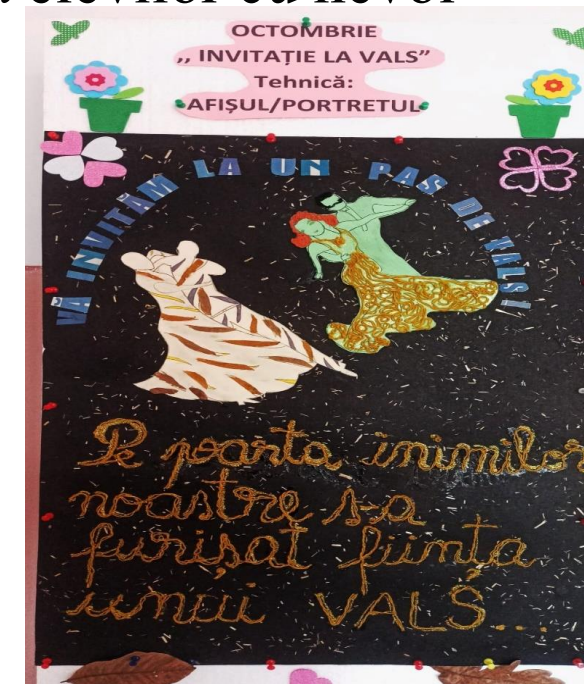 OCTOMBRIE
,, INVITAȚIE LA VALS”
Tehnică:
AFIȘUL/PORTRETUL
VĂ INVITĂM LA UN PAS DE VALS!
Pe poarta inimilor
noastre s-a
furișat ființa
unui VALS...